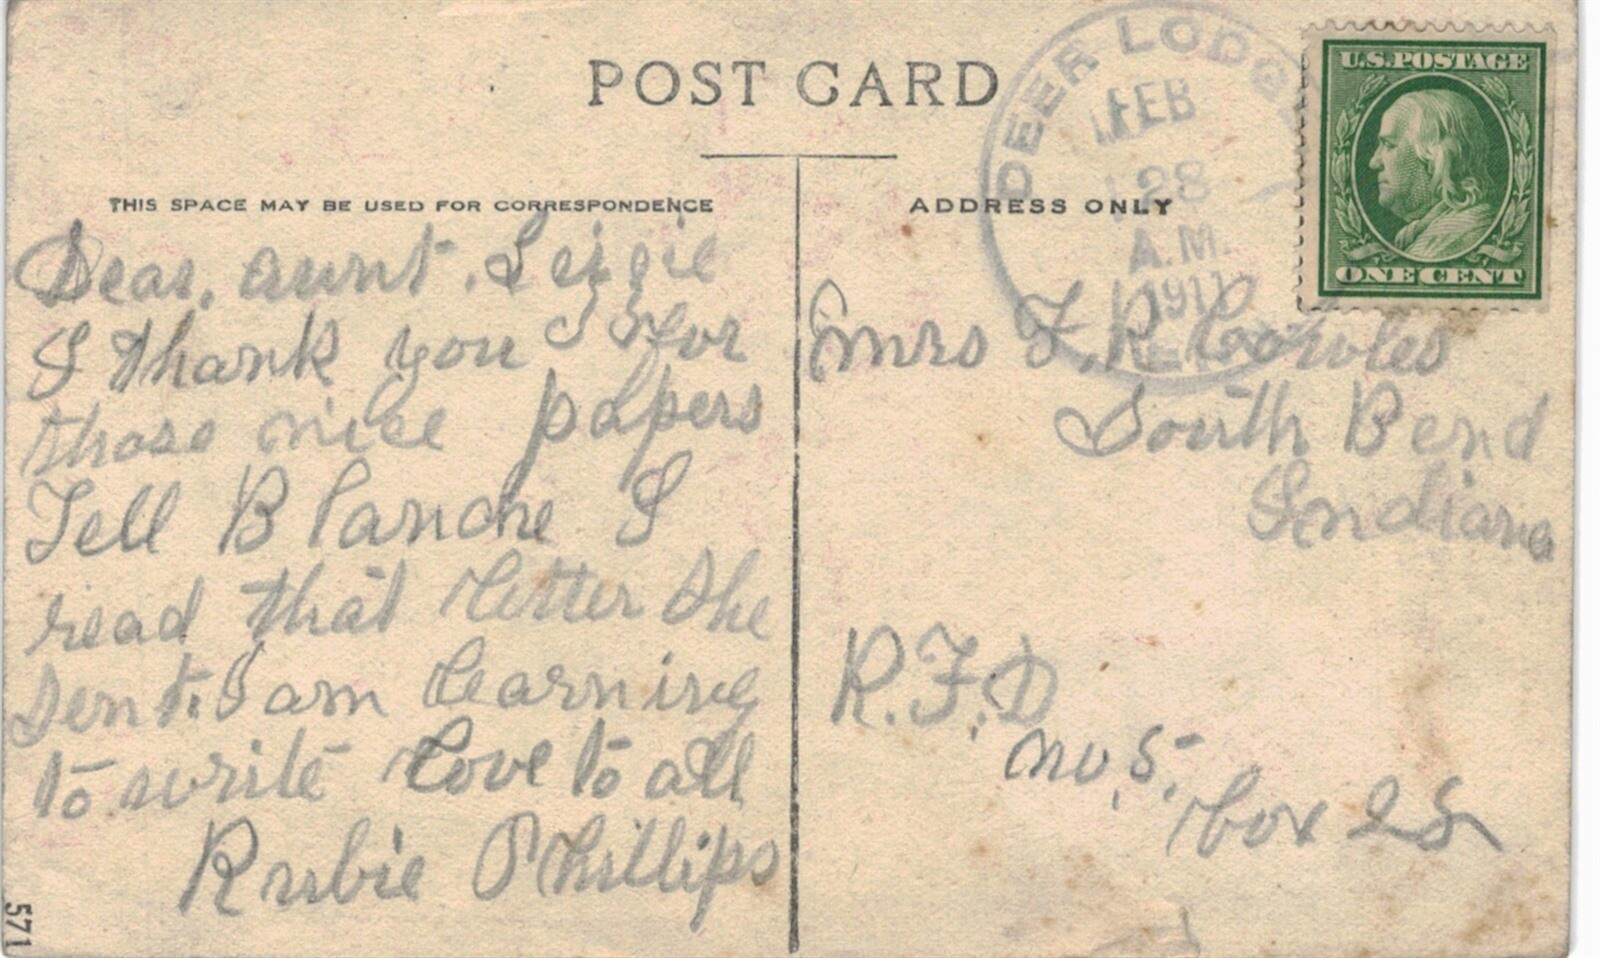 POST CARD
THIS SPACE MAY BE USED FOR CORRESPONDENCE
Dear, aunt. Leizie
I thank you for
those nice papers
Tell Blanche I
read that letter she
sent. I am learning
to write love to all
Rubie Phillips
571
DEER LODGE
FEB
28
A.M.
1911
TENN.
U.S. POSTAGE
ONE CENT
ADDRESS ONLY
Mrs F. R.
South Bend
Indiana
R.F.D
no, 5,
box